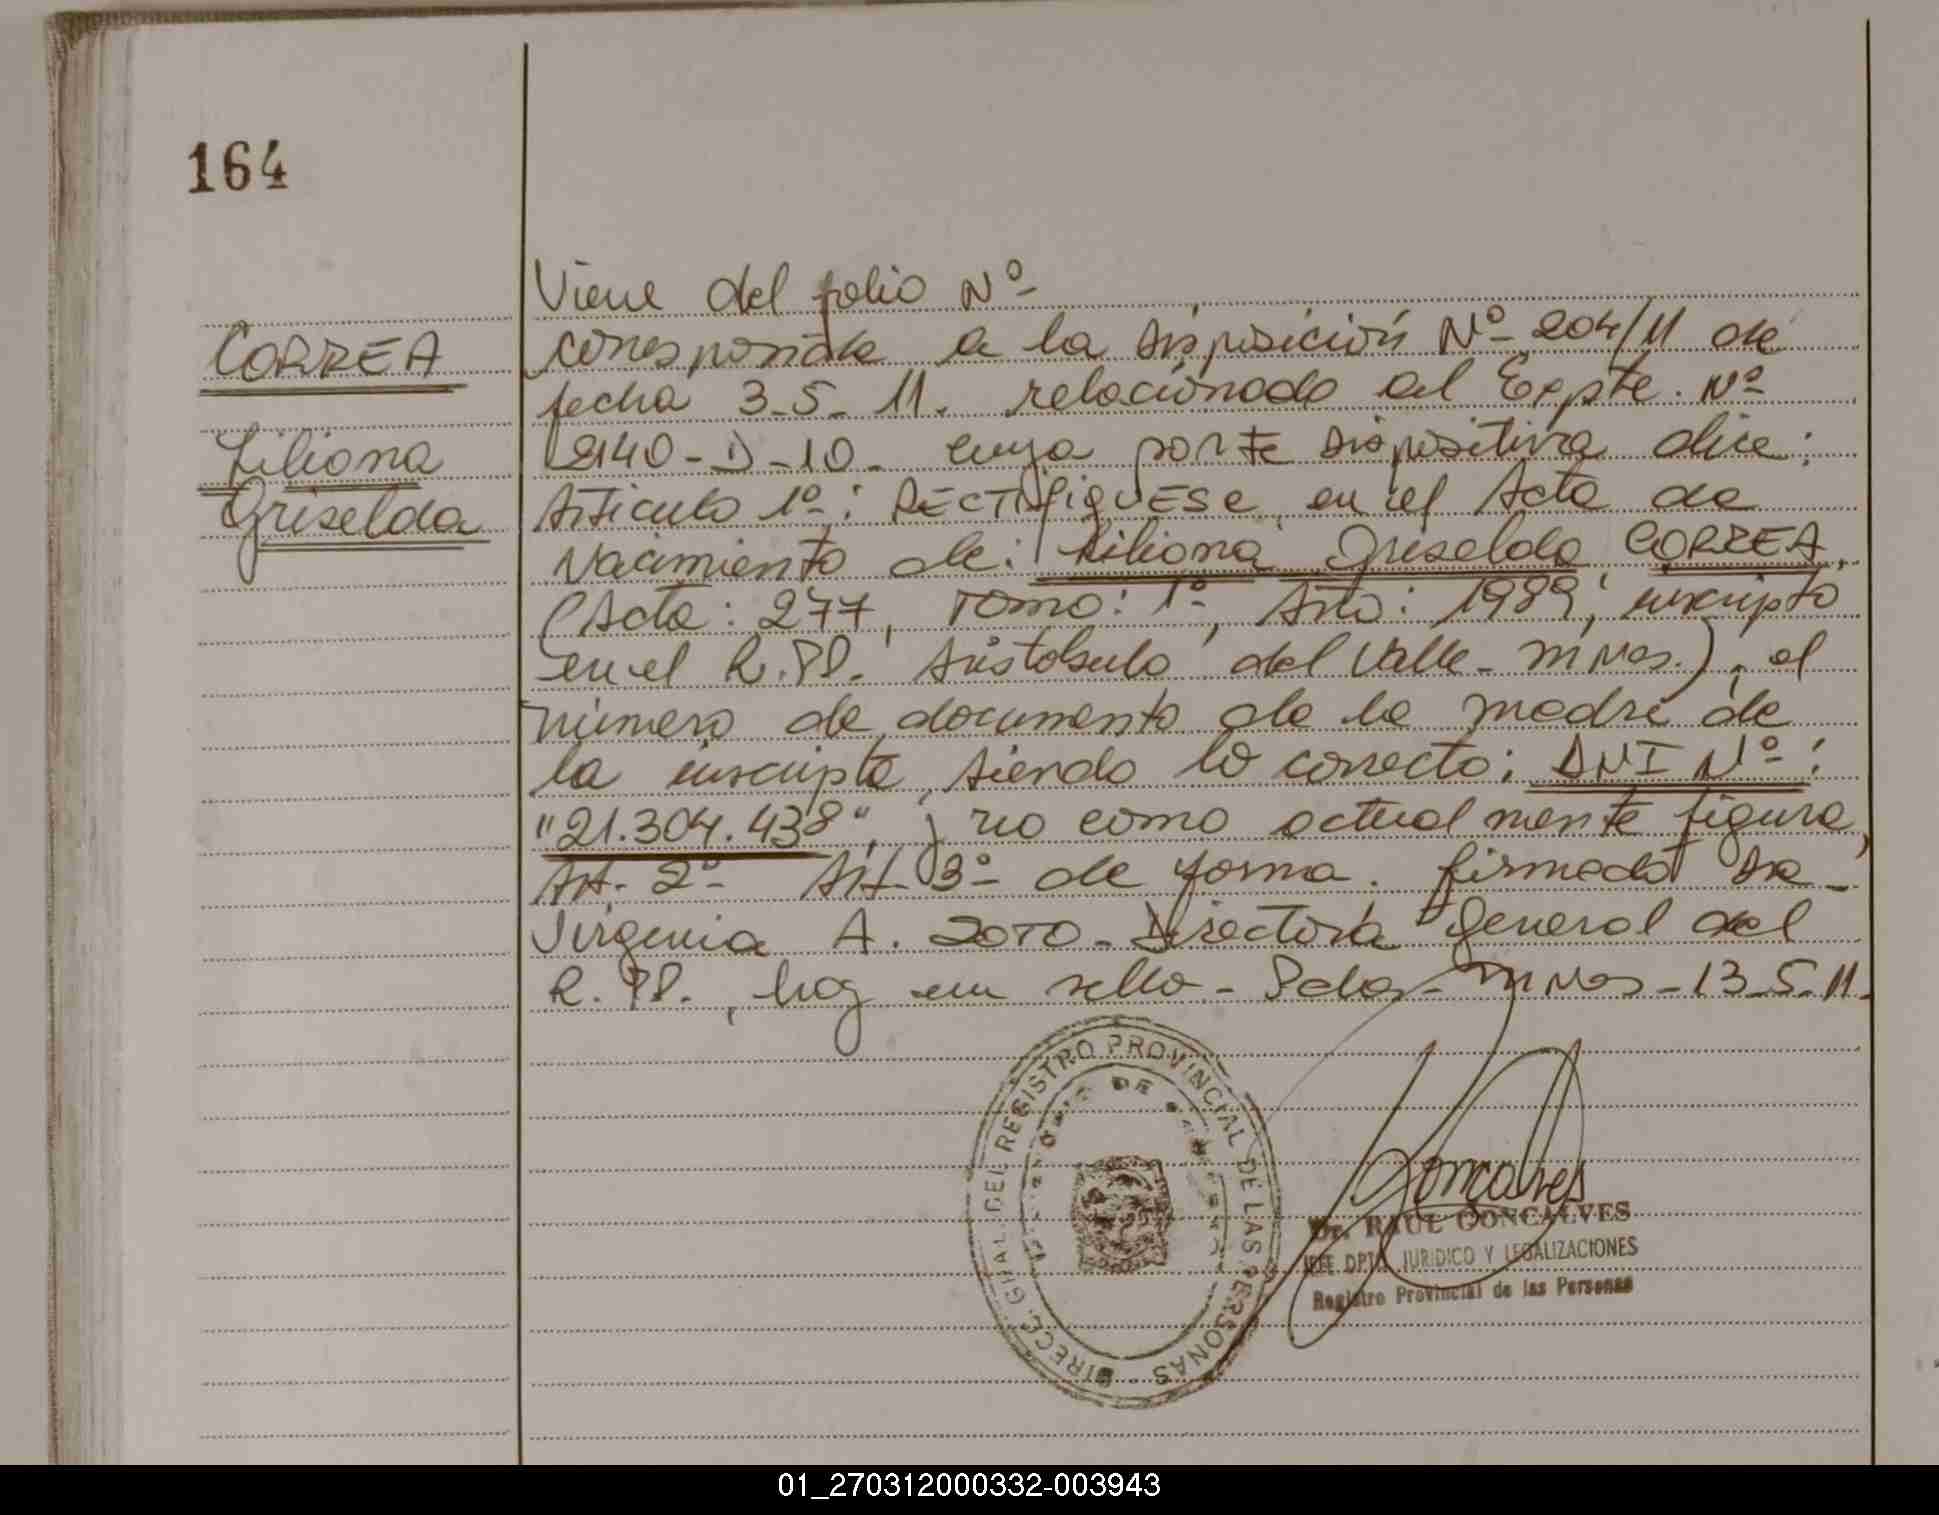 164
CORREA
Liliana
Griselda
Viene del folio Nº
corresponde a la Disposición Nº 204/11 de
fecha 3-5-11. relacionado al Expte. Nº
2140-D-10- cuya parte dispositiva dice:
Artículo 1º: RECTIFIQUESE, en el Acta de
Nacimiento de: Liliana Griselda CORREA,
(Acta: 277, Tomo: 1º, Año: 1989, inscripto
en el R.PP. Aristóbulo del Valle- Mnes.), el
número de documento de la madre de
la inscripta, siendo lo correcto: DNI Nº:
"21.304.438", y no como actualmente figura,
Art. 2º Art 3º de forma. firmado Dra
Virginia A. SOTO- Directora General del
R.PP., hay un sello- Pdas- Mnes-13-5-11.
DIRECC. GRAL. DEL REGISTRO PROVINCIAL DE LAS PERSONAS
DE
Goncalves
Dr. RAUL GONCALVES
JEFE DPTO. JURIDICO Y LEGALIZACIONES
Registro Provincial de las Personas
01_270312000332-003943